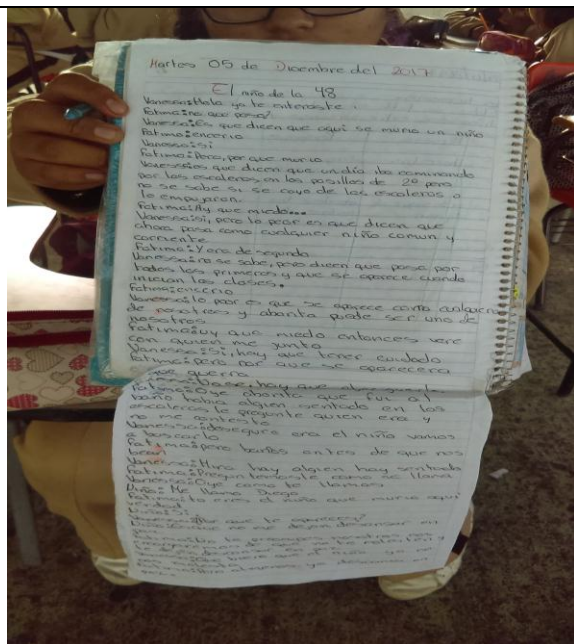 Martes 05 de Diciembre del 2017
El niño de la 48
Vanessa:Hola ya te enteraste.
Fatima:no que paso?
Vanessa:Es que dicen que aqui se murio un niño
Fatima:encerio
Vanessa:Si
Fatima:Pero,por que murio
Vanessa:es que dicen que un día iba caminando
por las escaleras en los pasillos de 2º pero
no se sabe si se cayo de las escaleras o
lo empujaron.
Fatima:Ay que miedo...
Vanessa:si, pero lo peor es que dicen que
ahora pasa como cualquier niño comun y
corriente
Fatima:Y era de segundo
Vanessa:no se sabe, pero dicen que pasa por
todos los primeros y que se aparece cuando
inician las clases.
Fatima:encerio
Vanessa:lo peor es que se aparece como cualquiera
de nosotras y ahorita puede ser uno de
nosotros
Fatima:uy que miedo entonces vere
con quien me junto
Vanessa:Si, hay que tener cuidado
Fatima:pero por que se aparecera
que querra
hay que
Fatima:Oye ahorita que fui al
baño habia alguien sentado en las
escaleras le pregunte quien era y
no me contesto
Vanessa:desegura era el niño vamos
a buscarlo
Fatima:pero antes de que nos
Vanessa:Mira hay alguien hay sentado
Fatima:Preguntemosle como se llama
Vanessa:Oye como te llamas
Niño: Me llamo Diego
Fatima:tu eres el niño que murio aqui
verdad
Niño:Si
Vanessa:Por que te apareces?
no me dejan descansar en
nosotras nos
de que no te molesten y
te dejen descansar en paz
niño ya no
molesta
Fatima: ya descansa en